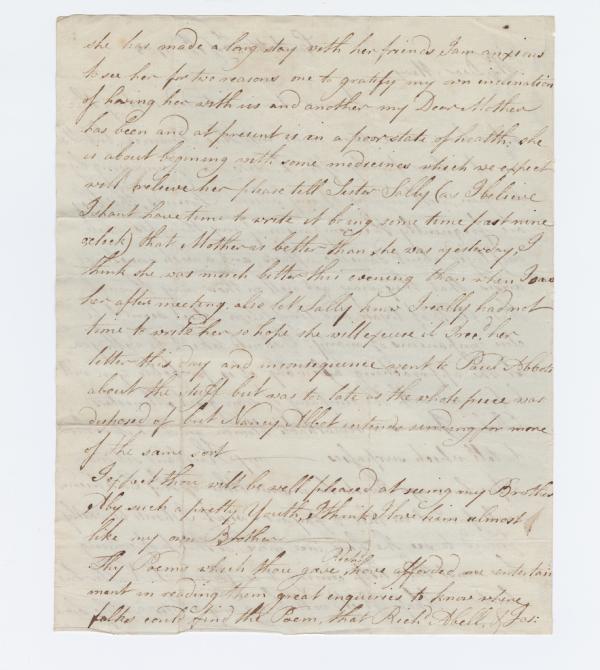 she has made a long stay with her friends I am anxious
to see her for two reasons one to gratify my own inclination
of having her with us and another my Dear Mother
has been and at present is in a poor state of health, she
is about begining with some medicines which we expect
will relieve her please tell Sister Sally (as I believe
I shant have time to write it being some time past nine
oclock) that Mother is better than she was yesterday, I
think she was much better this evening than when I saw
her after meeting, also let Sally know I really had not
time to write her so hope she will excuse it I rec.d her
letter this day and in consequence went to Paul Abbots
about the stuff but was to late as the whole piece was
disposed of but Nancy Abbot intends sending for more
of the same sort
I expect thou will be well pleased at seeing my Brother
Aby such a pretty Youth, I think I love him almost
like my own Brother
Thy Poems which thou gave Richd have afforded me entertain
ment in reading them great enquiries to know where
folks could find the Poem, that Richd Abell, & Jos: